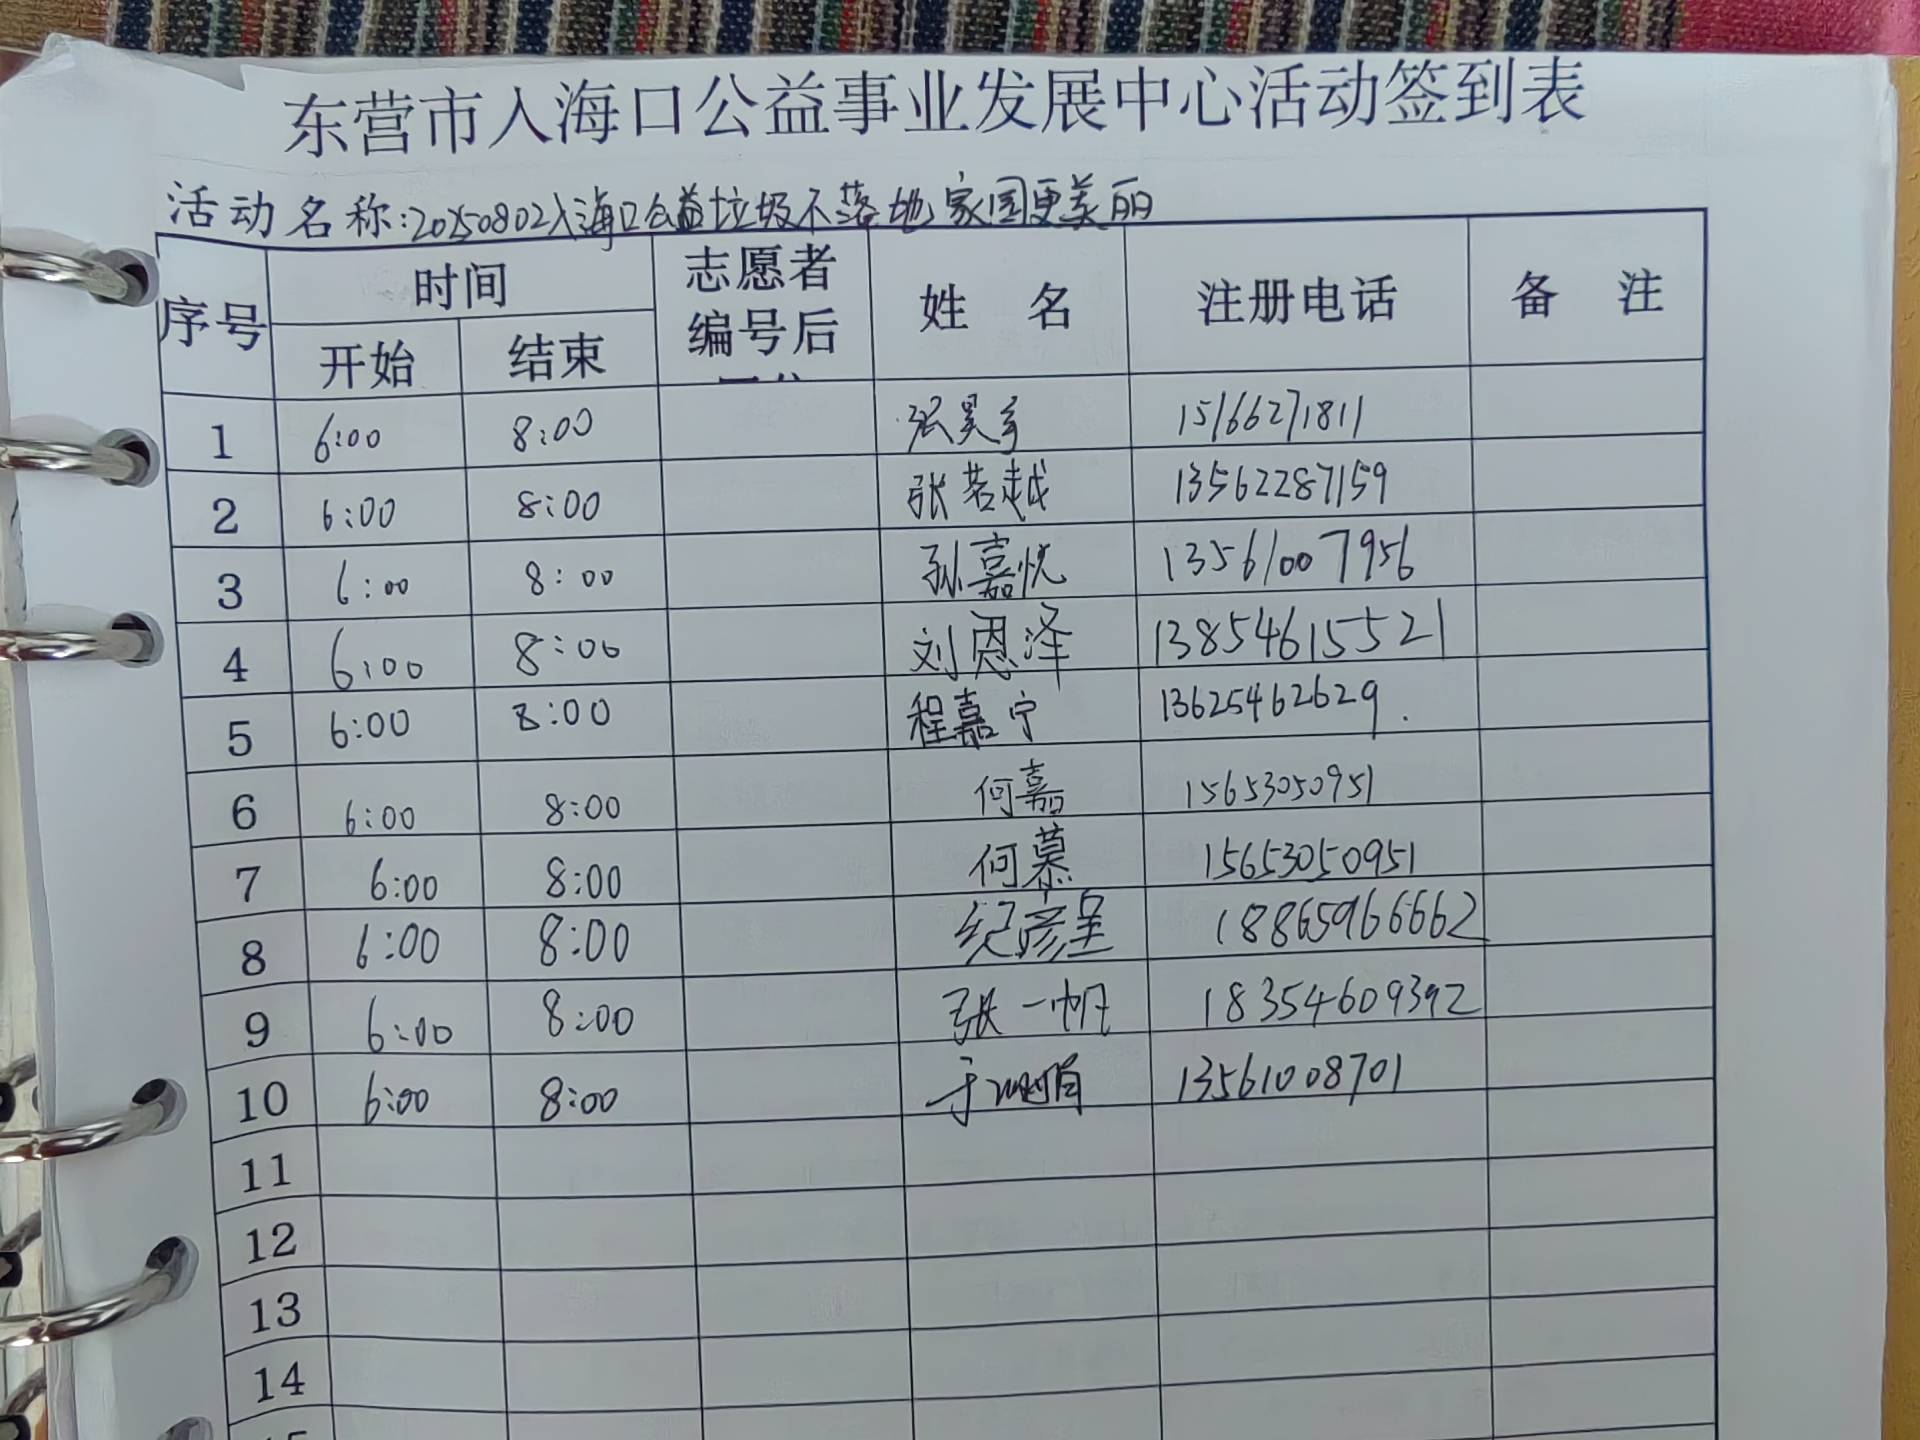 东营市入海口公益事业发展中心活动签到表
活动名称:20250802入海口公益垃圾不落地家园更美丽
序号 时间 志愿者编号后 姓 名 注册电话 备 注
开始 结束
1 6:00 8:00 张昊 15166271811
2 6:00 8:00 张若越 13562287159
3 6:00 8:00 孙嘉悦 13561007956
4 6:00 8:00 刘恩泽 13854615521
5 6:00 8:00 程嘉宁 13625462629.
6 6:00 8:00 何嘉 15653050951
7 6:00 8:00 何慕 15653050951
8 6:00 8:00 纪彦呈 18865966662
9 6:00 8:00 张一帆 18354609392
10 6:00 8:00 于 13561008701
11
12
13
14